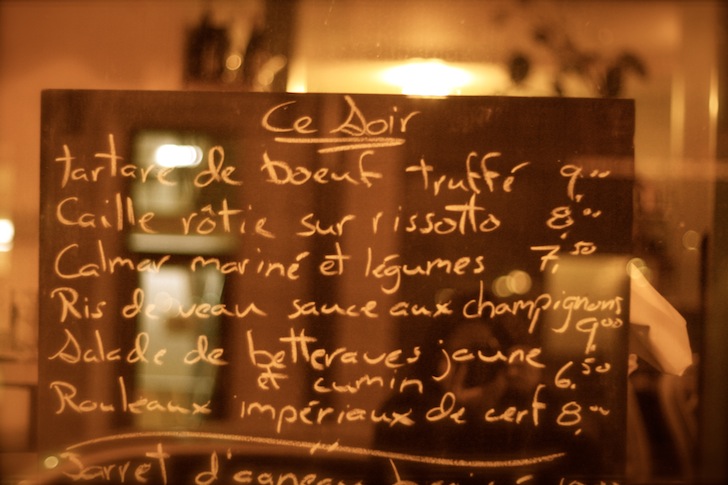 Ce Soir
tartare de boeuf truffé 9.00
Caille rôtie sur rissotto 8.00
Calmar mariné et légumes 7.50
Ris de veau sauce aux champignons
9.00
Salade de betteraves jaune
et cumin 6.50
Rouleaux impériaux de cerf 8.00
Jarret d'agneau